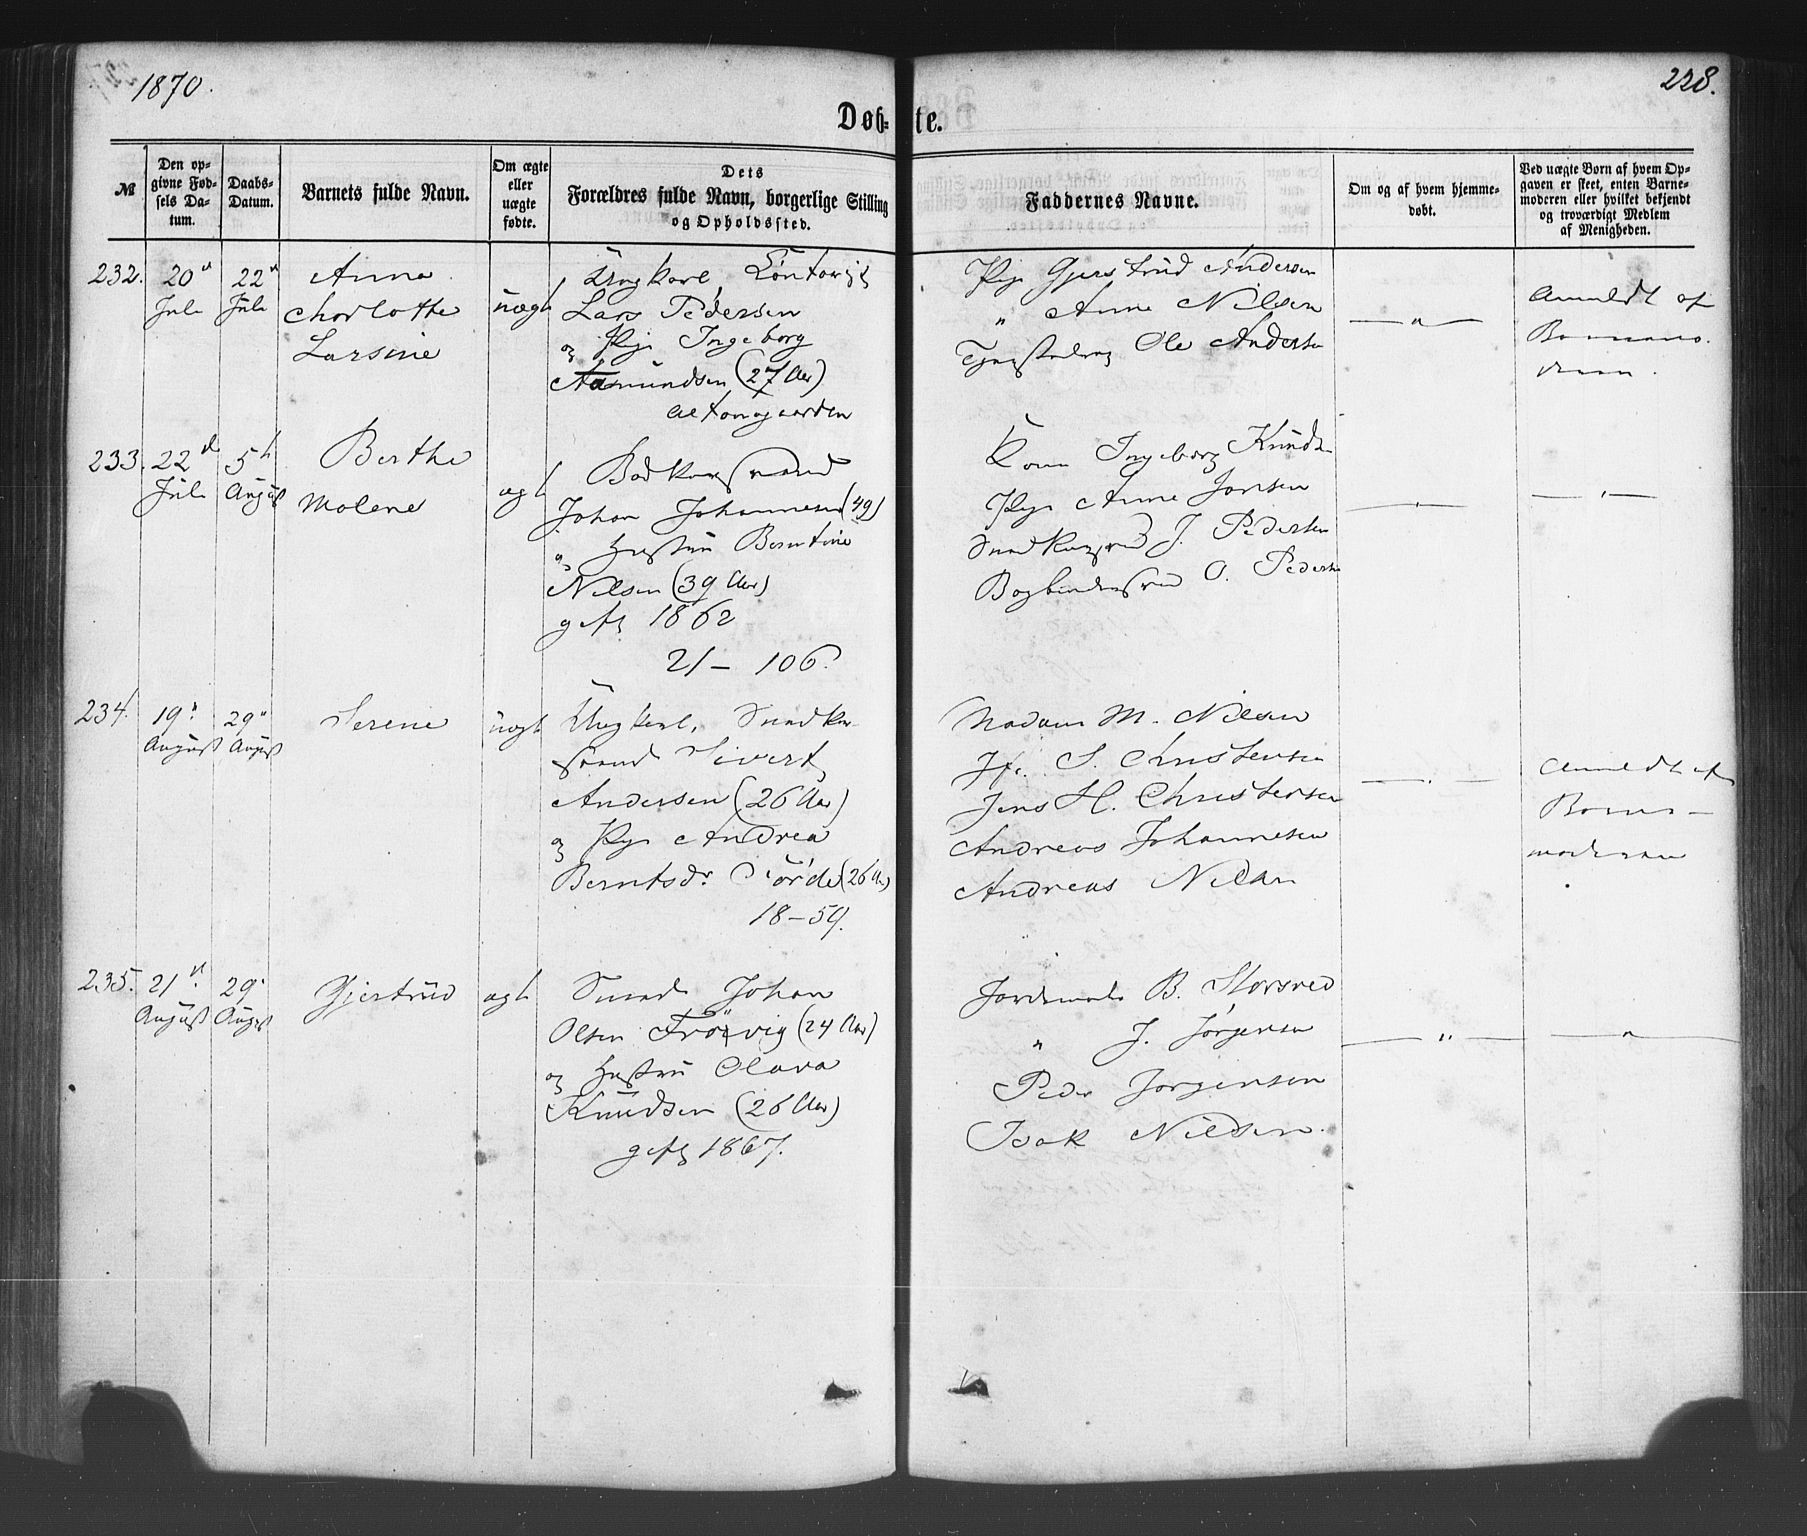 1870.
228.
Døb-te.
№
Den op-
givne Fød-
sels Da-
tum.
Daabs-
Datum.
Barnets fulde Navn.
Om ægte
eller
uægte
fødte.
Dets
Forældres fulde Navn, borgerlige Stilling
og Opholdssted.
Faddernes Navne.
Om og af hvem hjemme-
døbt.
Ved uægte Børn af hvem Op-
gaven er skeet, enten Barne-
moderen eller hvilket bekjendt
og troværdigt Medlem
af Menigheden.
232.
20
Juli
22
Juli
Anna
Charlotte
Larsine
uægt
Ungkarl,
Lars Pedersen
og Pige Ingeborg
Aamundsen (27 Aar)
Altonagaarden
Pige Gjertrud Andersen
" Anne Nilsen
Ole Andersen
— " —
Anmeldt af
Barnemo-
deren.
233.
22
Juli
5
August
Berthe
Malene
ægt
Johan Johannesen (49)
" Hustru Berntine
Nilsen (39 Aar)
gift 1862
21 — 106.
Kone Ingeborg Knudsen
Pige Anne Jansen
J. Pedersen
O. Pedersen
— " —
— " —
234.
19
August
29
August
Serene
uægt
Ungkarl,
Sivert
Andersen (26 Aar)
og Pige Andrea
Berntsdr. Førde (26 Aar)
18 — 59.
Madam M. Nilsen
Jfr. S. Christensen
Jens H. Christensen
Andreas Johannesen
Andreas Nilsen
— " —
Anmeldt af
Barne-
moderen
235.
21
August
29
August
Gjertrud
ægt
Johan
Olsen Frøvig (24 Aar)
og Hustru Olava
Knudsen (26 Aar)
gift 1867.
Jordemoder B. Storsved
" J. Jørgensen
Peder Jørgensen
Isak Nilsen.
— " —
— " —